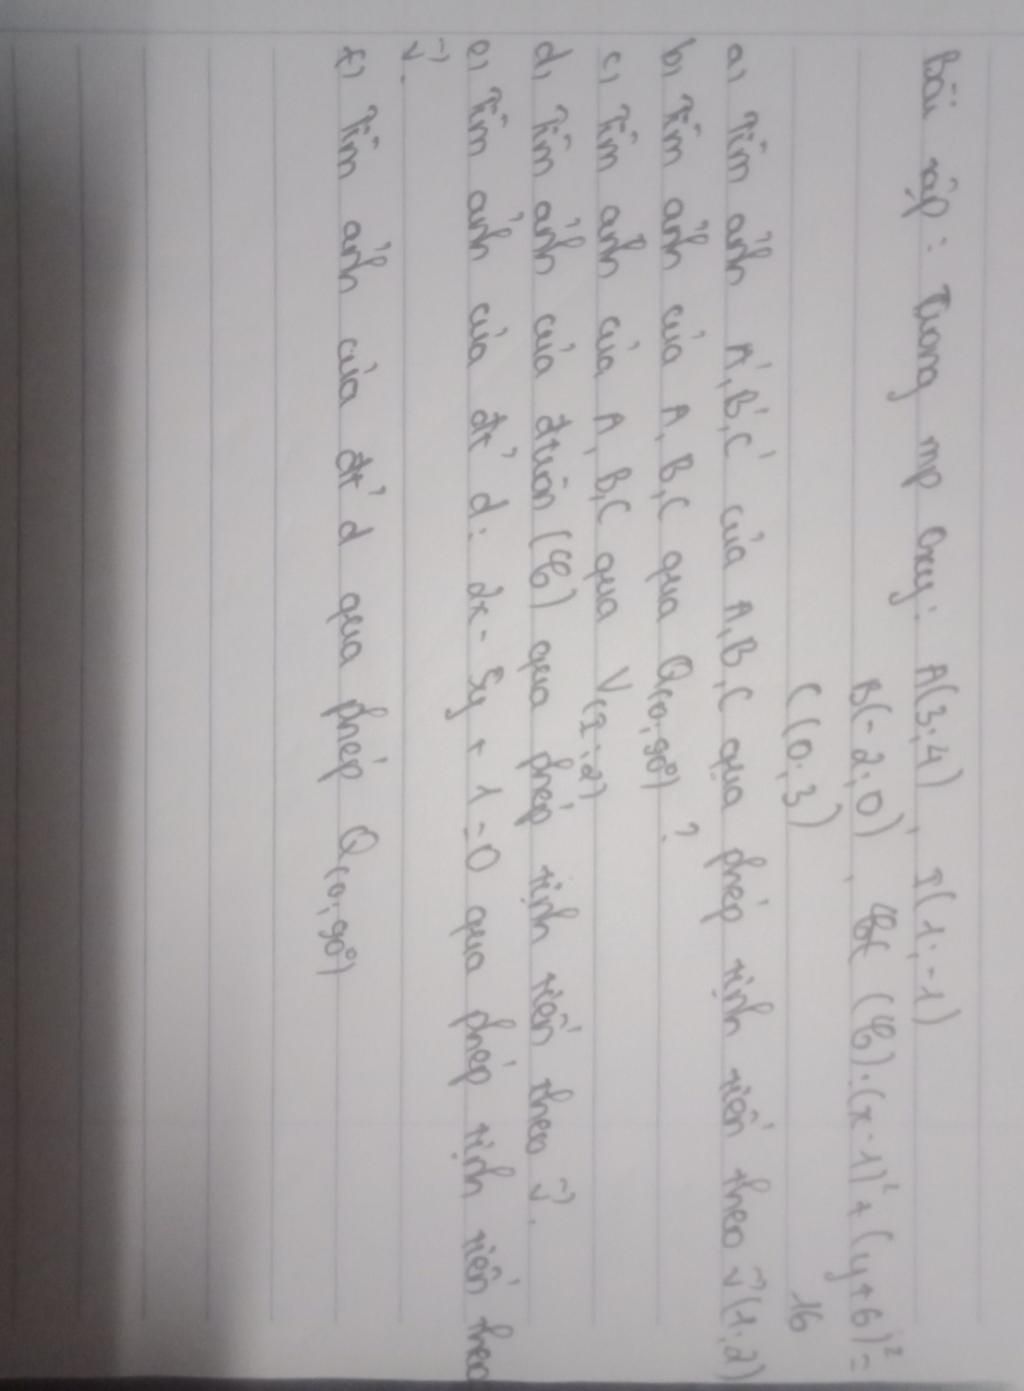 Bài tập : Trong mp Oxy : A(3;4), I(1;-1)
B(-2;0), (C): (x-1)² + (y+6)² =
C(0;3) 16
a, Tìm ảnh A', B', C' của A, B, C qua phép tịnh tiến theo v⃗(1;2)
b, Tìm ảnh của A, B, C qua Q(O;90°) ?
c, Tìm ảnh của A, B, C qua V(I;2)
d, Tìm ảnh của đtròn (C) qua phép tịnh tiến theo v⃗.
e, Tìm ảnh của đt' d: 2x - 5y + 1 = 0 qua phép tịnh tiến theo
v⃗.
f, Tìm ảnh của đt' d qua phép Q(O;90°)